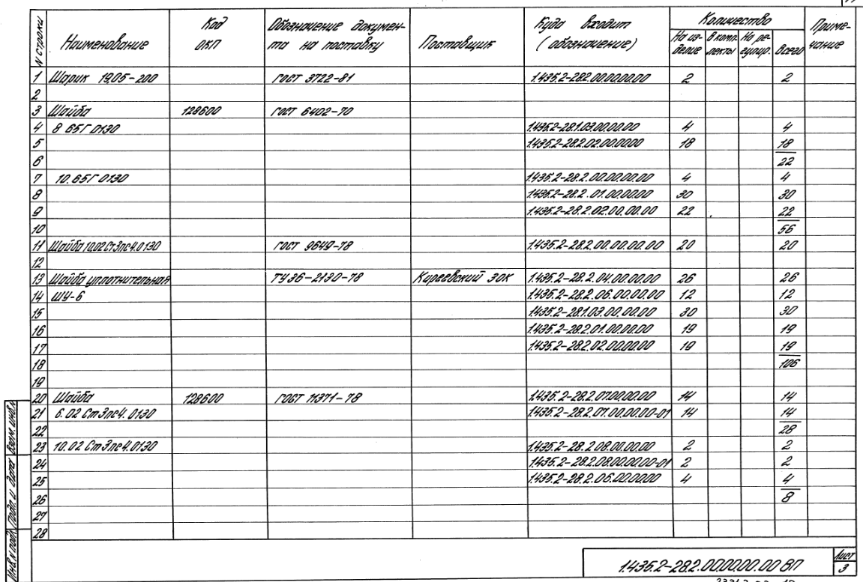 № строки | Наименование | Код ОКП | Обозначение документа на поставку | Поставщик | Куда входит (обозначение) | Количество | На изделие | В компл лекты | На регулир. | Всего | Примечание
1 Шарик 19.05-200 ГОСТ 3722-81 1.435.2-28.2.00.00.00.00 2 2
2
3 Шайба 128600 ГОСТ 6402-70
4 8 65Г 0130 1.435.2-28.1.03.00.00.00 4 4
5 1.435.2-28.2.02.00.00.00 18 18
6 22
7 10.65Г.0130 1.435.2-28.2.00.00.00.00 4 4
8 1.435.2-28.2.01.00.00.00 30 30
9 1.435.2-28.2.02.00.00.00 22 22
10 56
11 Шайба 10.02Ст3пс4.0130 ГОСТ 9649-78 1.435.2-28.2.00.00.00.00 20 20
12
13 Шайба уплотнительная ТУ36-2130-78 Киреевский ЗОК 1.435.2-28.2.04.00.00.00 26 26
14 ШУ-6 1.435.2-28.2.06.00.00.00 12 12
15 1.435.2-28.1.03.00.00.00 30 30
16 1.435.2-28.2.01.00.00.00 19 19
17 1.435.2-28.2.02.00.00.00 19 19
18 106
19
20 Шайба 128600 ГОСТ 11371-78 1.435.2-28.2.07.00.00.00 14 14
21 6.02 Ст3пс4.0130 1.435.2-28.2.07.00.00.00-01 14 14
22 28
23 10.02 Ст3пс4.0130 1.435.2-28.2.08.00.00.00 2 2
24 1.435.2-28.2.08.00.00.00-01 2 2
25 1.435.2-28.2.06.00.00.00 4 4
26 8
27
28
Инв.№ подл. Подп. и дата Взам. инв.№
1.435.2-28.2.00.00.00.00 ВП
Лист
3